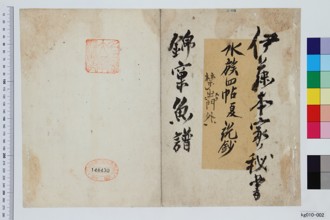 伊藤本家秘書
水族四帖夏説鈔
禁出門外
錦窠魚譜
148430
kg010-002